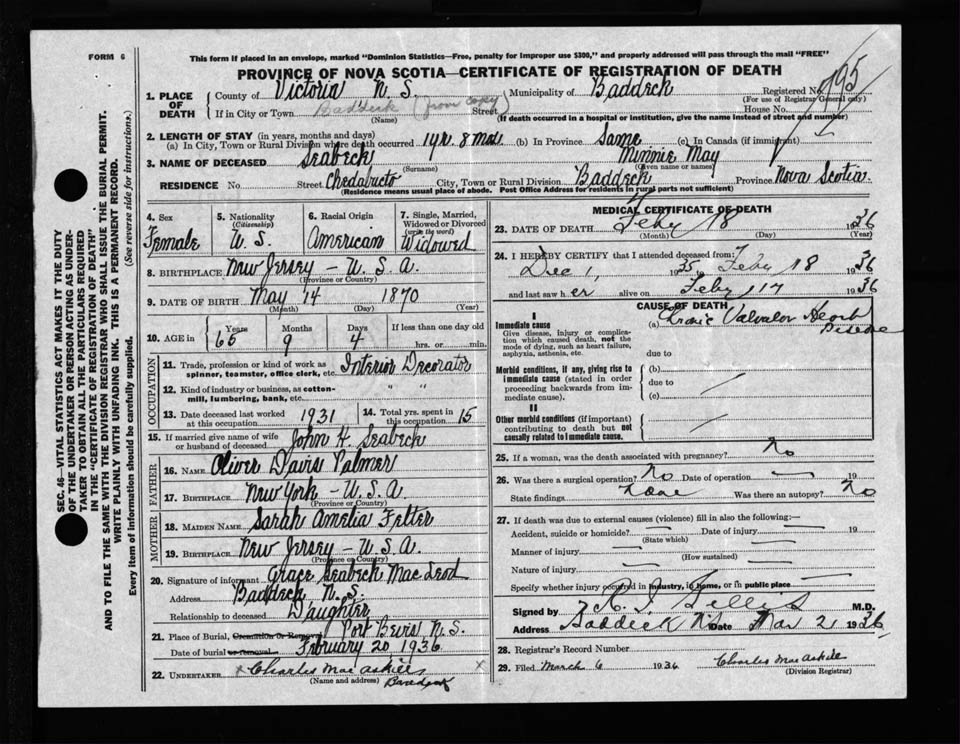 FORM 6
This form if placed in an envelope, marked "Dominion Statistics—Free, penalty for improper use $300," and properly addressed will pass through the mail "FREE"
PROVINCE OF NOVA SCOTIA—CERTIFICATE OF REGISTRATION OF DEATH
195
1. PLACE OF DEATH
County of Victoria N. S. Municipality of Baddeck Registered No.
(For use of Registrar General only)
If in City or Town Baddeck (from copy) Street House No.
(Name) (If death occurred in a hospital or institution, give the name instead of street and number)
2. LENGTH OF STAY (in years, months and days)
(a) In City, Town or Rural Division where death occurred 1 yr. 8 mos. (b) In Province Same (c) In Canada (if immigrant)
3. NAME OF DECEASED Seabeck Minnie May
(Surname) (Given name or names)
RESIDENCE No. Street Chedabucto City, Town or Rural Division Baddeck Province Nova Scotia.
(Residence means usual place of abode. Post Office Address for residents in rural parts not sufficient)
4. Sex Female
5. Nationality (Citizenship) U. S.
6. Racial Origin American
7. Single, Married, Widowed or Divorced (write by word) Widowed
8. BIRTHPLACE New Jersey – U. S. A.
(Province or Country)
9. DATE OF BIRTH May 14 1870
(Month) (Day) (Year)
10. AGE in Years 65 Months 9 Days 4 If less than one day old hrs. or min.
OCCUPATION
11. Trade, profession or kind of work as spinner, teamster, office clerk, etc. Interior Decorator
12. Kind of industry or business, as cotton-mill, lumbering, bank, etc. " "
13. Date deceased last worked at this occupation 1931
14. Total yrs. spent in this occupation 15
15. If married give name of wife or husband of deceased John H. Seabeck
FATHER
16. NAME Oliver Davis Palmer
17. BIRTHPLACE New York – U. S. A
(Province or Country)
MOTHER
18. MAIDEN NAME Sarah Amelia Felter
19. BIRTHPLACE New Jersey – U. S. A.
(Province or Country)
20. Signature of informant Grace Seabeck MacLeod
Address Baddeck N. S.
Relationship to deceased Daughter
21. Place of Burial, Cremation or Removal Port Bevis N. S.
Date of burial or removal February 20, 1936.
22. UNDERTAKER x Charles MacAskill x
(Name and address) Baddeck
MEDICAL CERTIFICATE OF DEATH
23. DATE OF DEATH Feby 18 1936
(Month) (Day) (Year)
24. I HEREBY CERTIFY that I attended deceased from:
Dec 1, 1935, Feby 18 1936
and last saw her alive on Feby 17 1936
CAUSE OF DEATH
I
Immediate cause
Give disease, injury or complication which caused death, not the mode of dying, such as heart failure, asphyxia, asthenia, etc.
(a) Valvular Heart Disease
due to
Morbid conditions, if any, giving rise to immediate cause (stated in order proceeding backwards from immediate cause).
(b)
due to
(c)
II
Other morbid conditions (if important) contributing to death but not causally related to immediate cause.
25. If a woman, was the death associated with pregnancy? No
26. Was there a surgical operation? No Date of operation — 19
State findings None Was there an autopsy? No
27. If death was due to external causes (violence) fill in also the following:—
Accident, suicide or homicide? — Date of injury — 19
(State which)
Manner of injury —
(How sustained)
Nature of injury —
Specify whether injury occurred in industry, in home, or in public place —
Signed by Gillis M.D.
Address Baddeck N.S. Date Mar 2 1936
28. Registrar's Record Number
29. Filed March 6 1936 Charles MacAskill
(Division Registrar)
SEC. 46—VITAL STATISTICS ACT MAKES IT THE DUTY
OF THE UNDERTAKER OR PERSON ACTING AS UNDER-
TAKER TO OBTAIN ALL THE PARTICULARS REQUIRED
IN THE "CERTIFICATE OF REGISTRATION OF DEATH"
AND TO FILE THE SAME WITH THE DIVISION REGISTRAR WHO SHALL ISSUE THE BURIAL PERMIT.
WRITE PLAINLY WITH UNFADING INK. THIS IS A PERMANENT RECORD.
Every item of information should be carefully supplied. (See reverse side for instructions.)